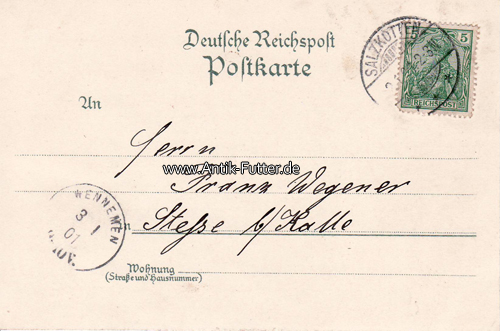 Deutsche Reichspost
Postkarte
SALZKOTTEN
5
REICHSPOST
An
Herrn
www.Antik-Futter.de
Franz Wegener
Stesse b/Kalle
WENNEMEN
3 1
01
Wohnung
(Straße und Hausnummer)